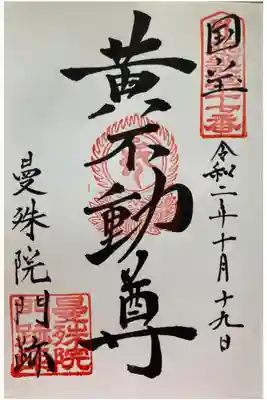 国宝
令和二年十月十九日
黄不動尊
曼殊院門跡
曼殊院
門跡